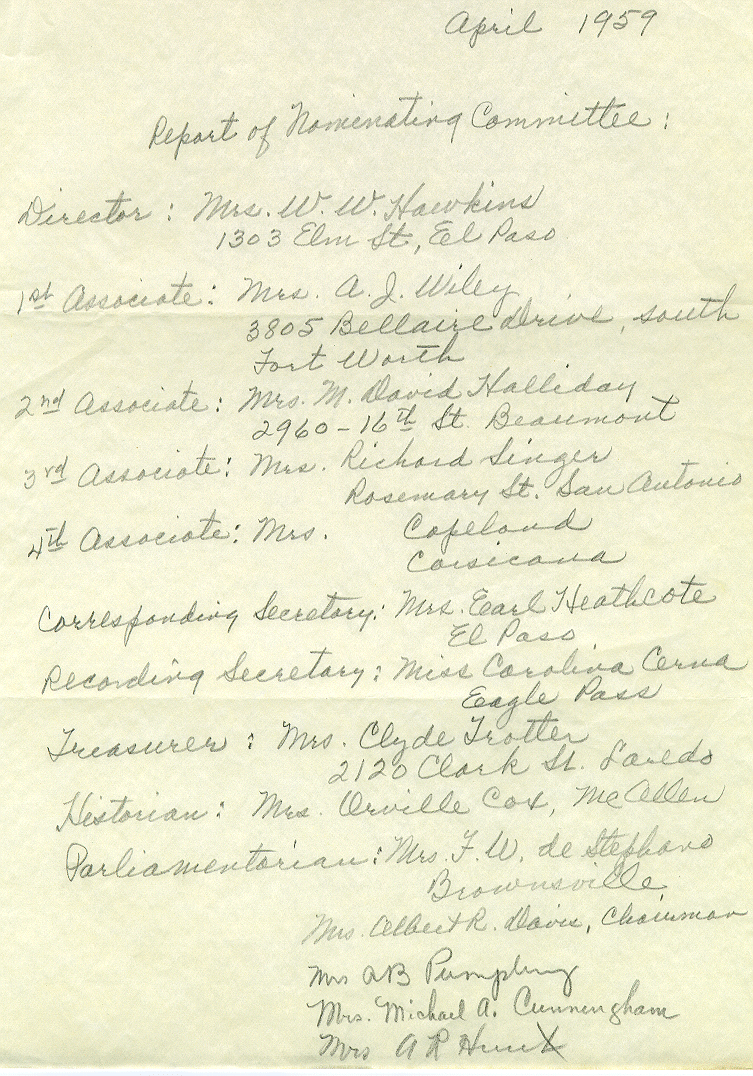 April 1959
Report of Nominating Committee:
Director: Mrs. W. W. Hawkins
1303 Elm St., El Paso
1st Associate: Mrs. A. J. Wiley
3805 Bellaire Drive, south
Fort Worth
2nd Associate: Mrs. M. David Halliday
2960-16th St. Beaumont
3rd Associate: Mrs. Richard Singer
Rosemary St. San Antonio
4th Associate: Mrs. Copeland
Corsicana
Corresponding Secretary: Mrs. Earl Heathcote
El Paso
Recording Secretary: Miss Carolina Cerna
Eagle Pass
Treasurer: Mrs. Clyde Trotter
2120 Clark St. Laredo
Historian: Mrs. Orville Cox, McAllen
Parliamentarian: Mrs. F. W. de Stephano
Brownsville
Mrs. Albert R. Davis, Chairman
Mrs AB
Mrs. Michael A. Cunningham
Mrs A R Hunt